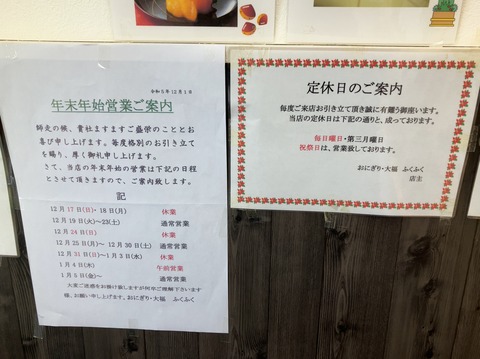 令和5年12月1日
年末年始営業ご案内
師走の候、貴社ますますご盛栄のこととお
喜び申し上げます。毎度格別のお引き立て
を賜り、厚く御礼申し上げます。
さて、当店の年末年始の営業は下記の日程
とさせて頂きますので、ご案内致します。
記
12月17日(日)・18日(月) 休業
12月19日(火)~23(土) 通常営業
12月24日(日) 休業
12月25日(月)~ 12月30日(土) 通常営業
12月31日(日)~1月3日(水) 休業
1月4日(木) 午前営業
1月5日(金)~ 通常営業
大変ご迷惑をお掛け致しますが何卒ご理解下さいます
様、お願い申し上げます。おにぎり・大福 ふくふく
定休日のご案内
毎度ご来店お引き立て頂き誠に有難う御座います。
当店の定休日は下記の通りと、成っております。
毎日曜日・第三月曜日
祝祭日は、営業致しております。
おにぎり・大福 ふくふく
店主